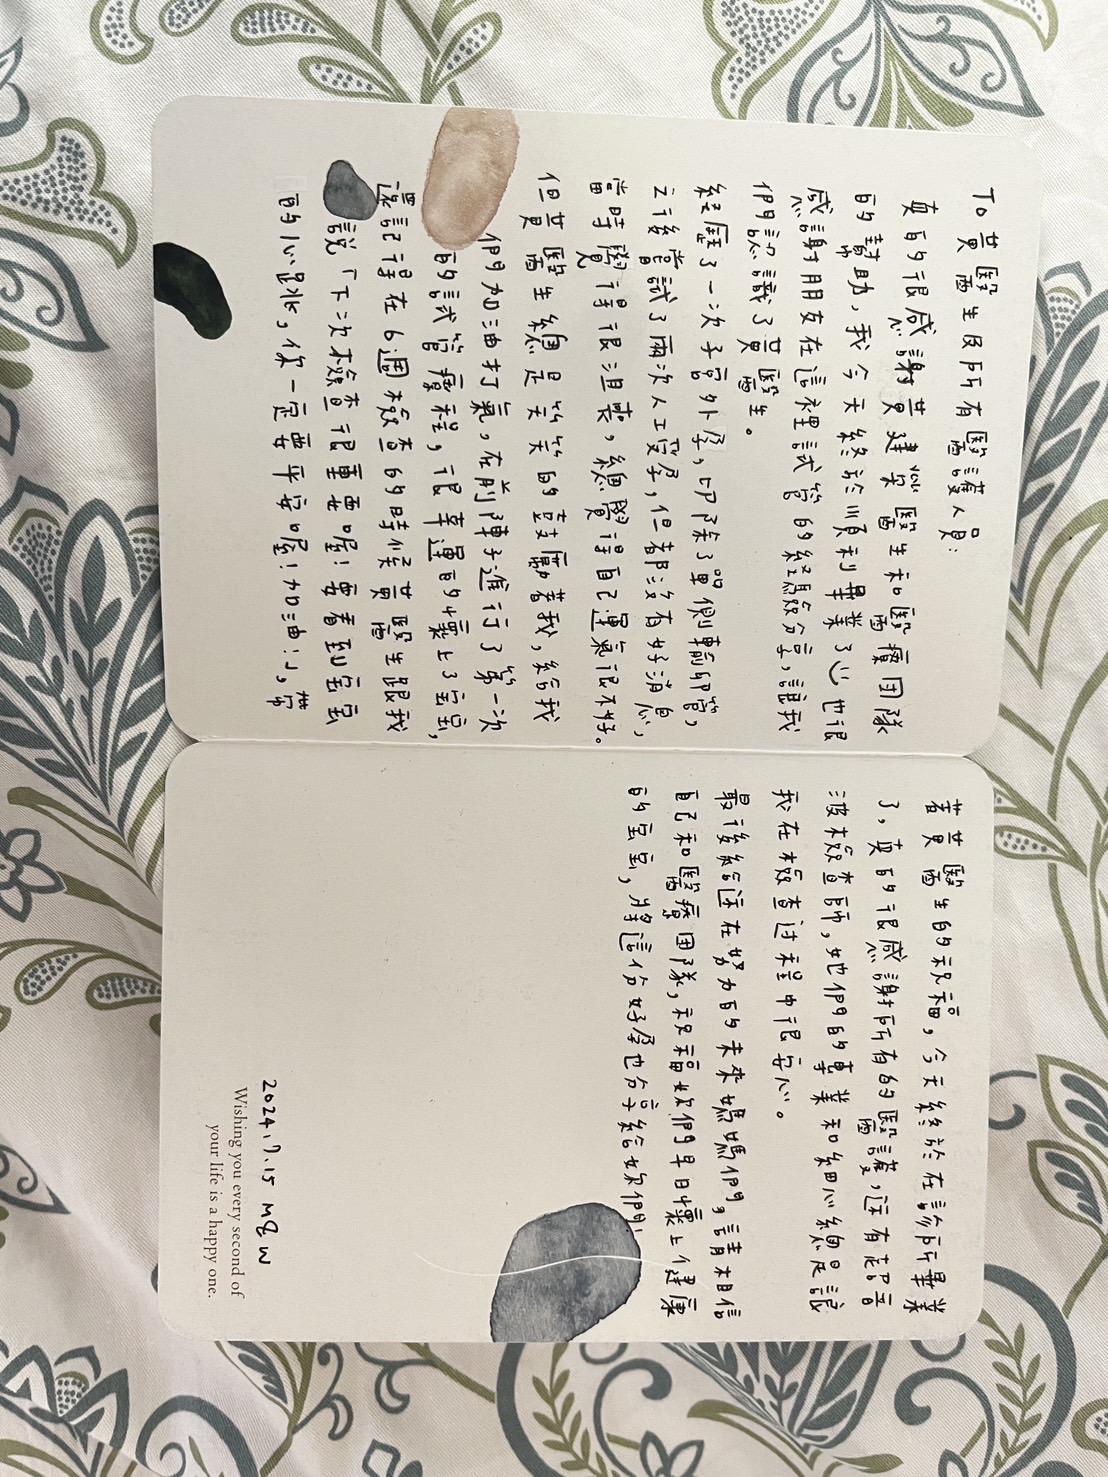 To 黃醫生及所有醫護人員：
真的很感謝黃建榮醫生和醫療團隊
的幫助，我今天終於順利畢業了 也很
感謝朋友在這裡試管的經驗分享，讓我
們認識了黃醫生。
經歷了一次子宮外孕，切除了單側輸卵管，
之後嘗試了兩次人工受孕，但都沒有好消息，
當時覺得很沮喪，總覺得自己運氣很不好。
但黃醫生總是笑笑的鼓勵著我，給我
們加油打氣，在前陣子進行了第一次
的試管療程，很幸運的懷上了寶寶，
還記得在6週檢查的時候黃醫生跟我
說「下次檢查很重要喔！要看到寶寶
的心跳，你一定要平安喔！加油！」，帶
著黃醫生的祝福，今天終於在診所畢業
了，真的很感謝所有的醫護，還有超音
波檢查師，她們的專業和細心總是讓
我在檢查過程中很安心。
最後給還在努力的未來媽媽們，請相信
自己和醫療團隊，祝福妳們早日懷上健康
的寶寶，將這份好孕也分享給妳們！
2024.7.15 M&W
Wishing you every second of
your life is a happy one.